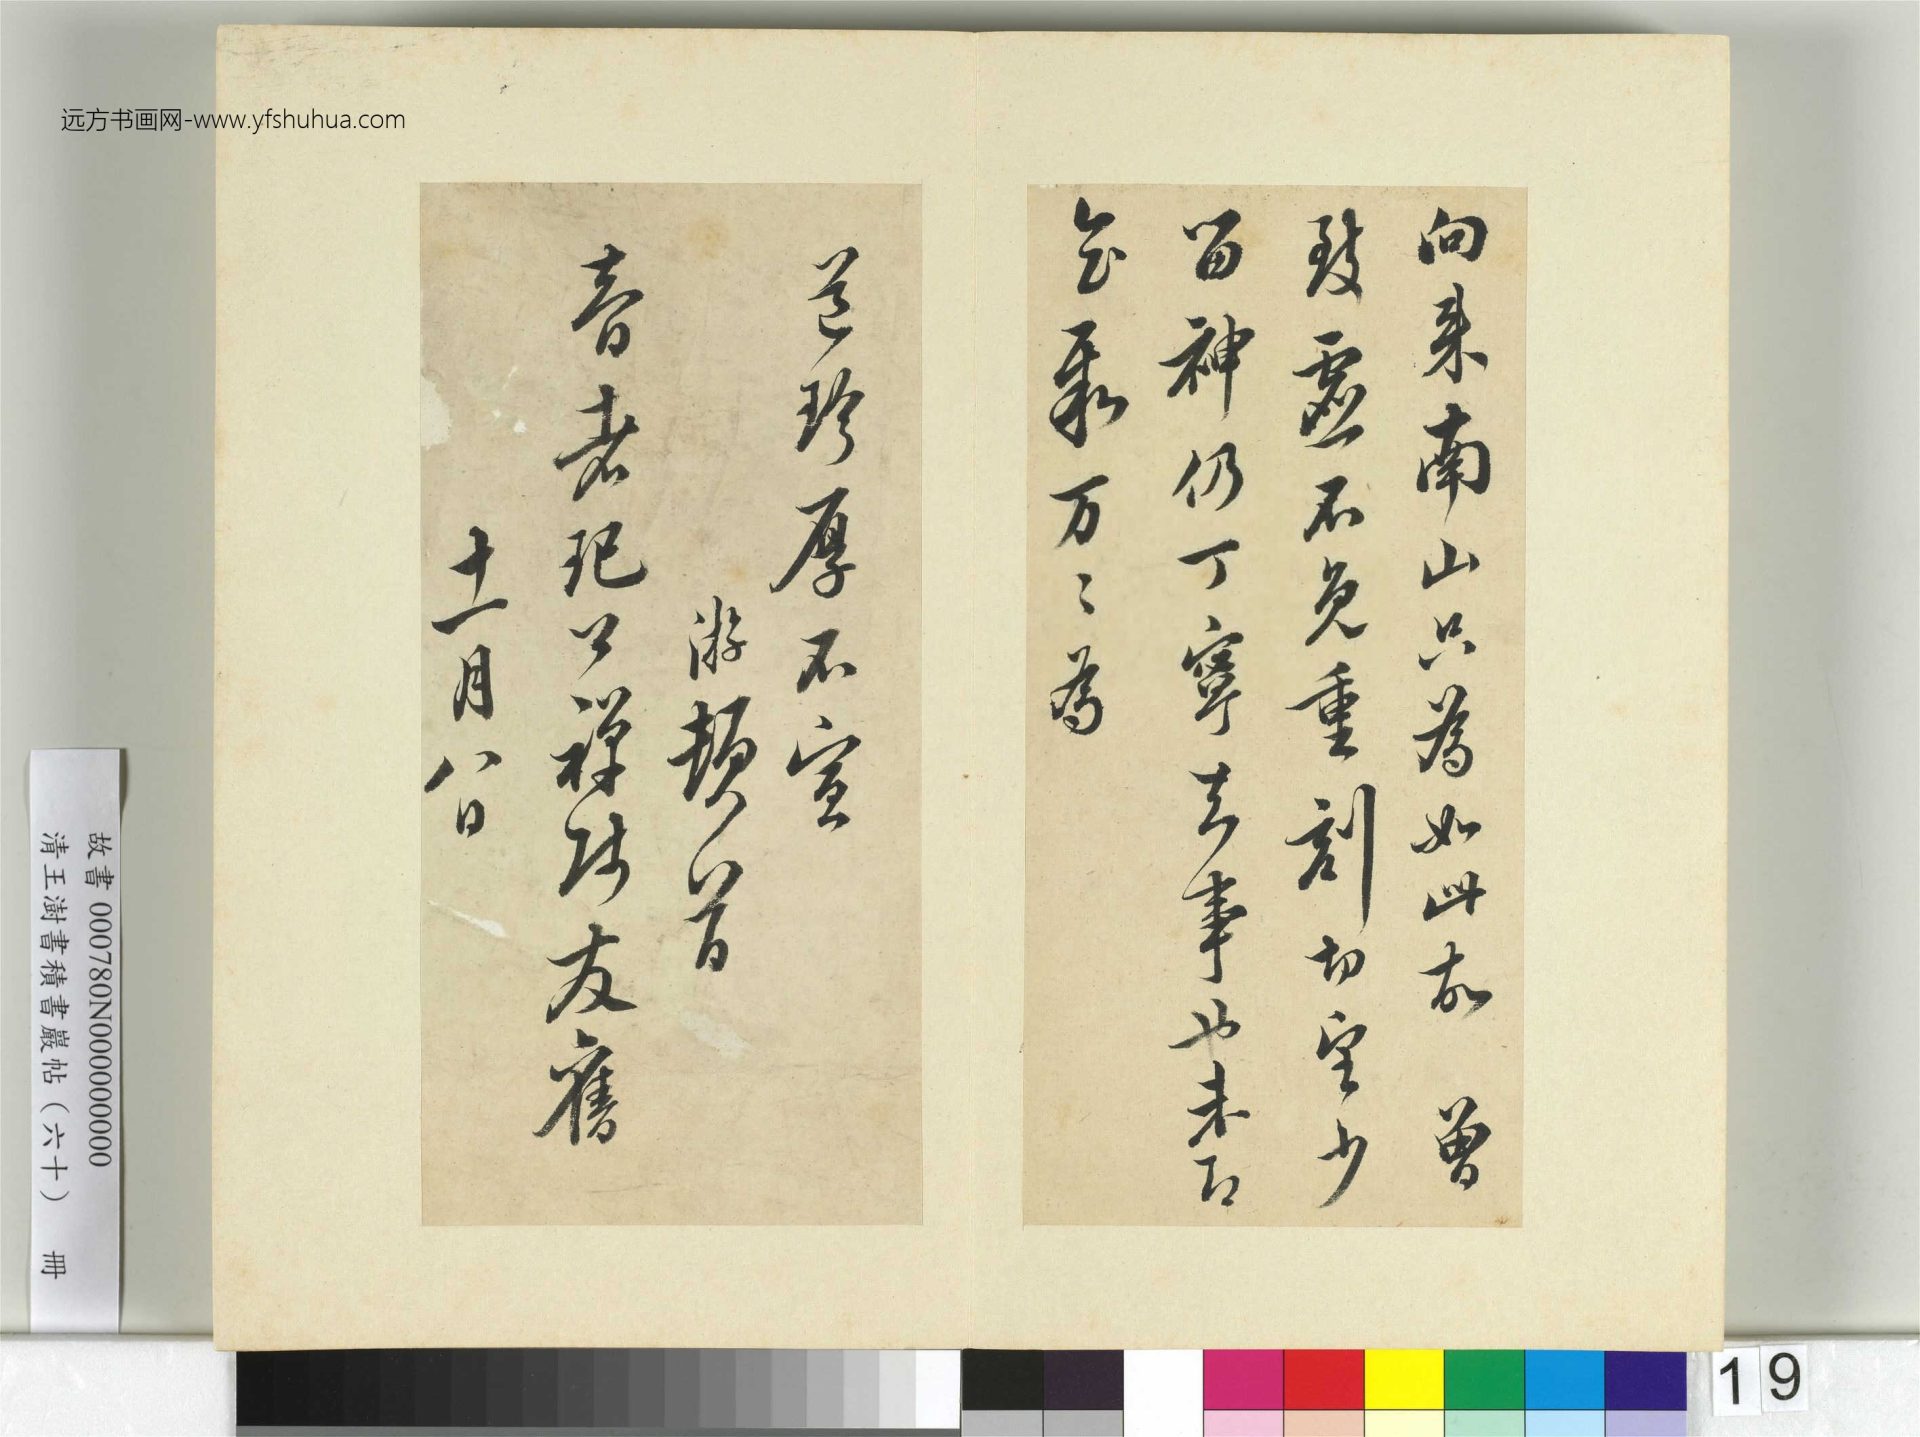 远方书画网-www.yfshuhua.com
向来南山只為如此故 曾
致虚不免重刻切望少
留神仍丁寧主事也未即
會聚万〻為
道珍厚不宣
游頓首
春老記公禪師友舊
十一月八日
故書 000780N000000000
清王澍書積書巖帖(六十) 冊
19